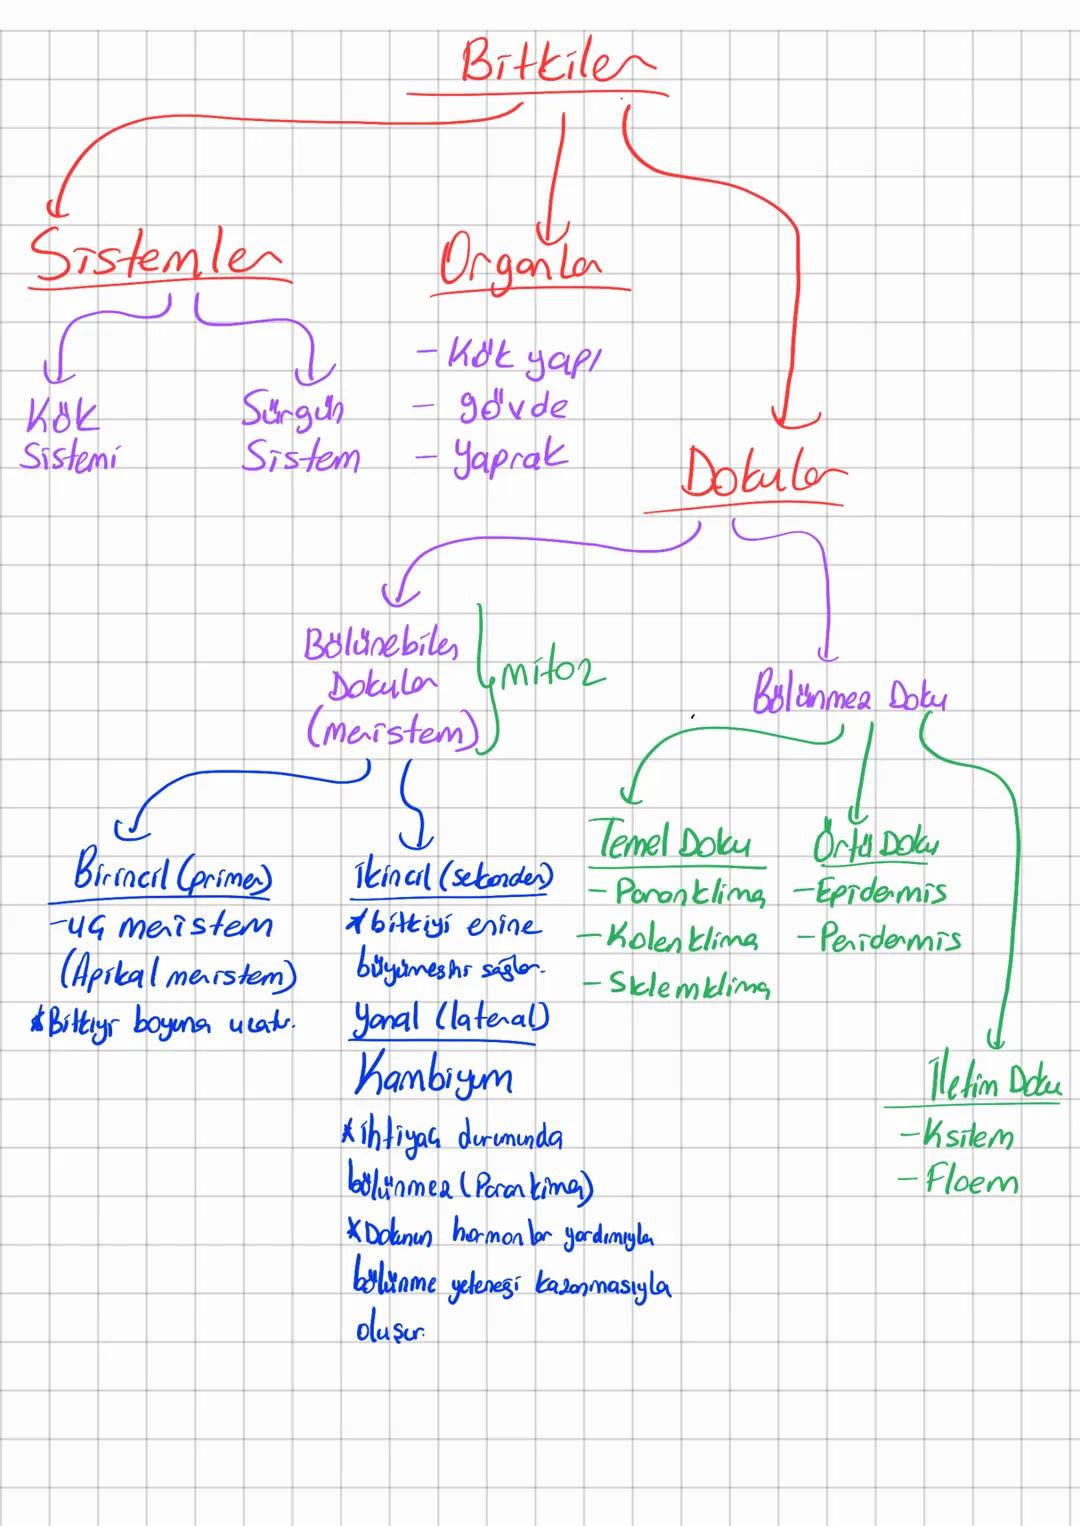 Bitkiler
Sistemler
Organlar
Kök
Sistemi
Sürgün
Sistem
- Kök yapı
- gövde
- yaprak
Dokular
Bölünebilen
Dokular
(meristem)
mitoz
Bölünmez Doku
Birincil (primer)
-uç meristem
(Apikal meristem)
*Bitkiyi boyuna uzatır.
ikincil (sekonder)
*bitkiyi enine
büyümesini sağlar.
Yanal (lateral)
Kambiyum
*ihtiyaç durumunda
bölünmez (Parankima)
*Dokunun hormonlar yardımıyla
bölünme yeteneği kazanmasıyla
oluşur.
Temel Doku
- Paranklima
- Kolenklima
- Sklemklima
Örtü Doku
-Epidermis
- Peridermis
İletim Doku
- Ksilem
- Floem